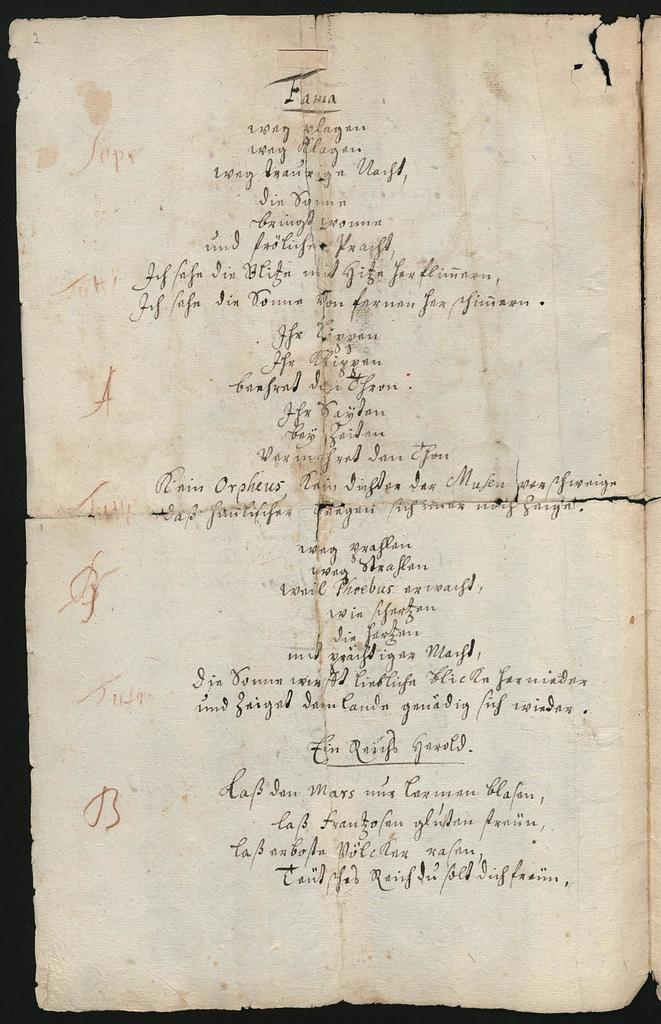 2
Fama
weg plagen
weg Klagen
weg traurige Nacht,
Sopr
die Sonne
bringt wonne
und frölicher Pracht,
Ich sehe die Blitze mit Hitze herflim̄ern,
Ich sehe die Sonne von fernen her schim̄ern.
Ihr Lippen
Ihr Klippen
beehret den Thron:
A
Ihr Sayten
bey Zeiten
Vermehret den Thon
Kein Orpheus Kein dichter der Musen verschweige
daß him̄lischer Seegen sich im̄er noch Zeige.
weg prahlen
weg Strahlen
weil Phoebus erwacht,
wie schertzen
die hertzen
mit prächtiger Macht,
die Sonne wirfft liebliche blicke hernieder
und Zeiget dem lande genädig sich wieder.
Ein Reichs Herold.
B
Laß den Mars nur lermen blasen,
laß Frantzosen gluten streün,
laß erboste Völcker rasen,
Teütsches Reich du solt dich freün,